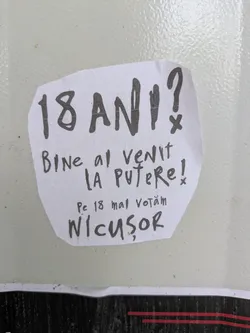 18 ANI?
BINE AI VENIT
LA PUTERE!
Pe 18 mai votăm
NICUȘOR